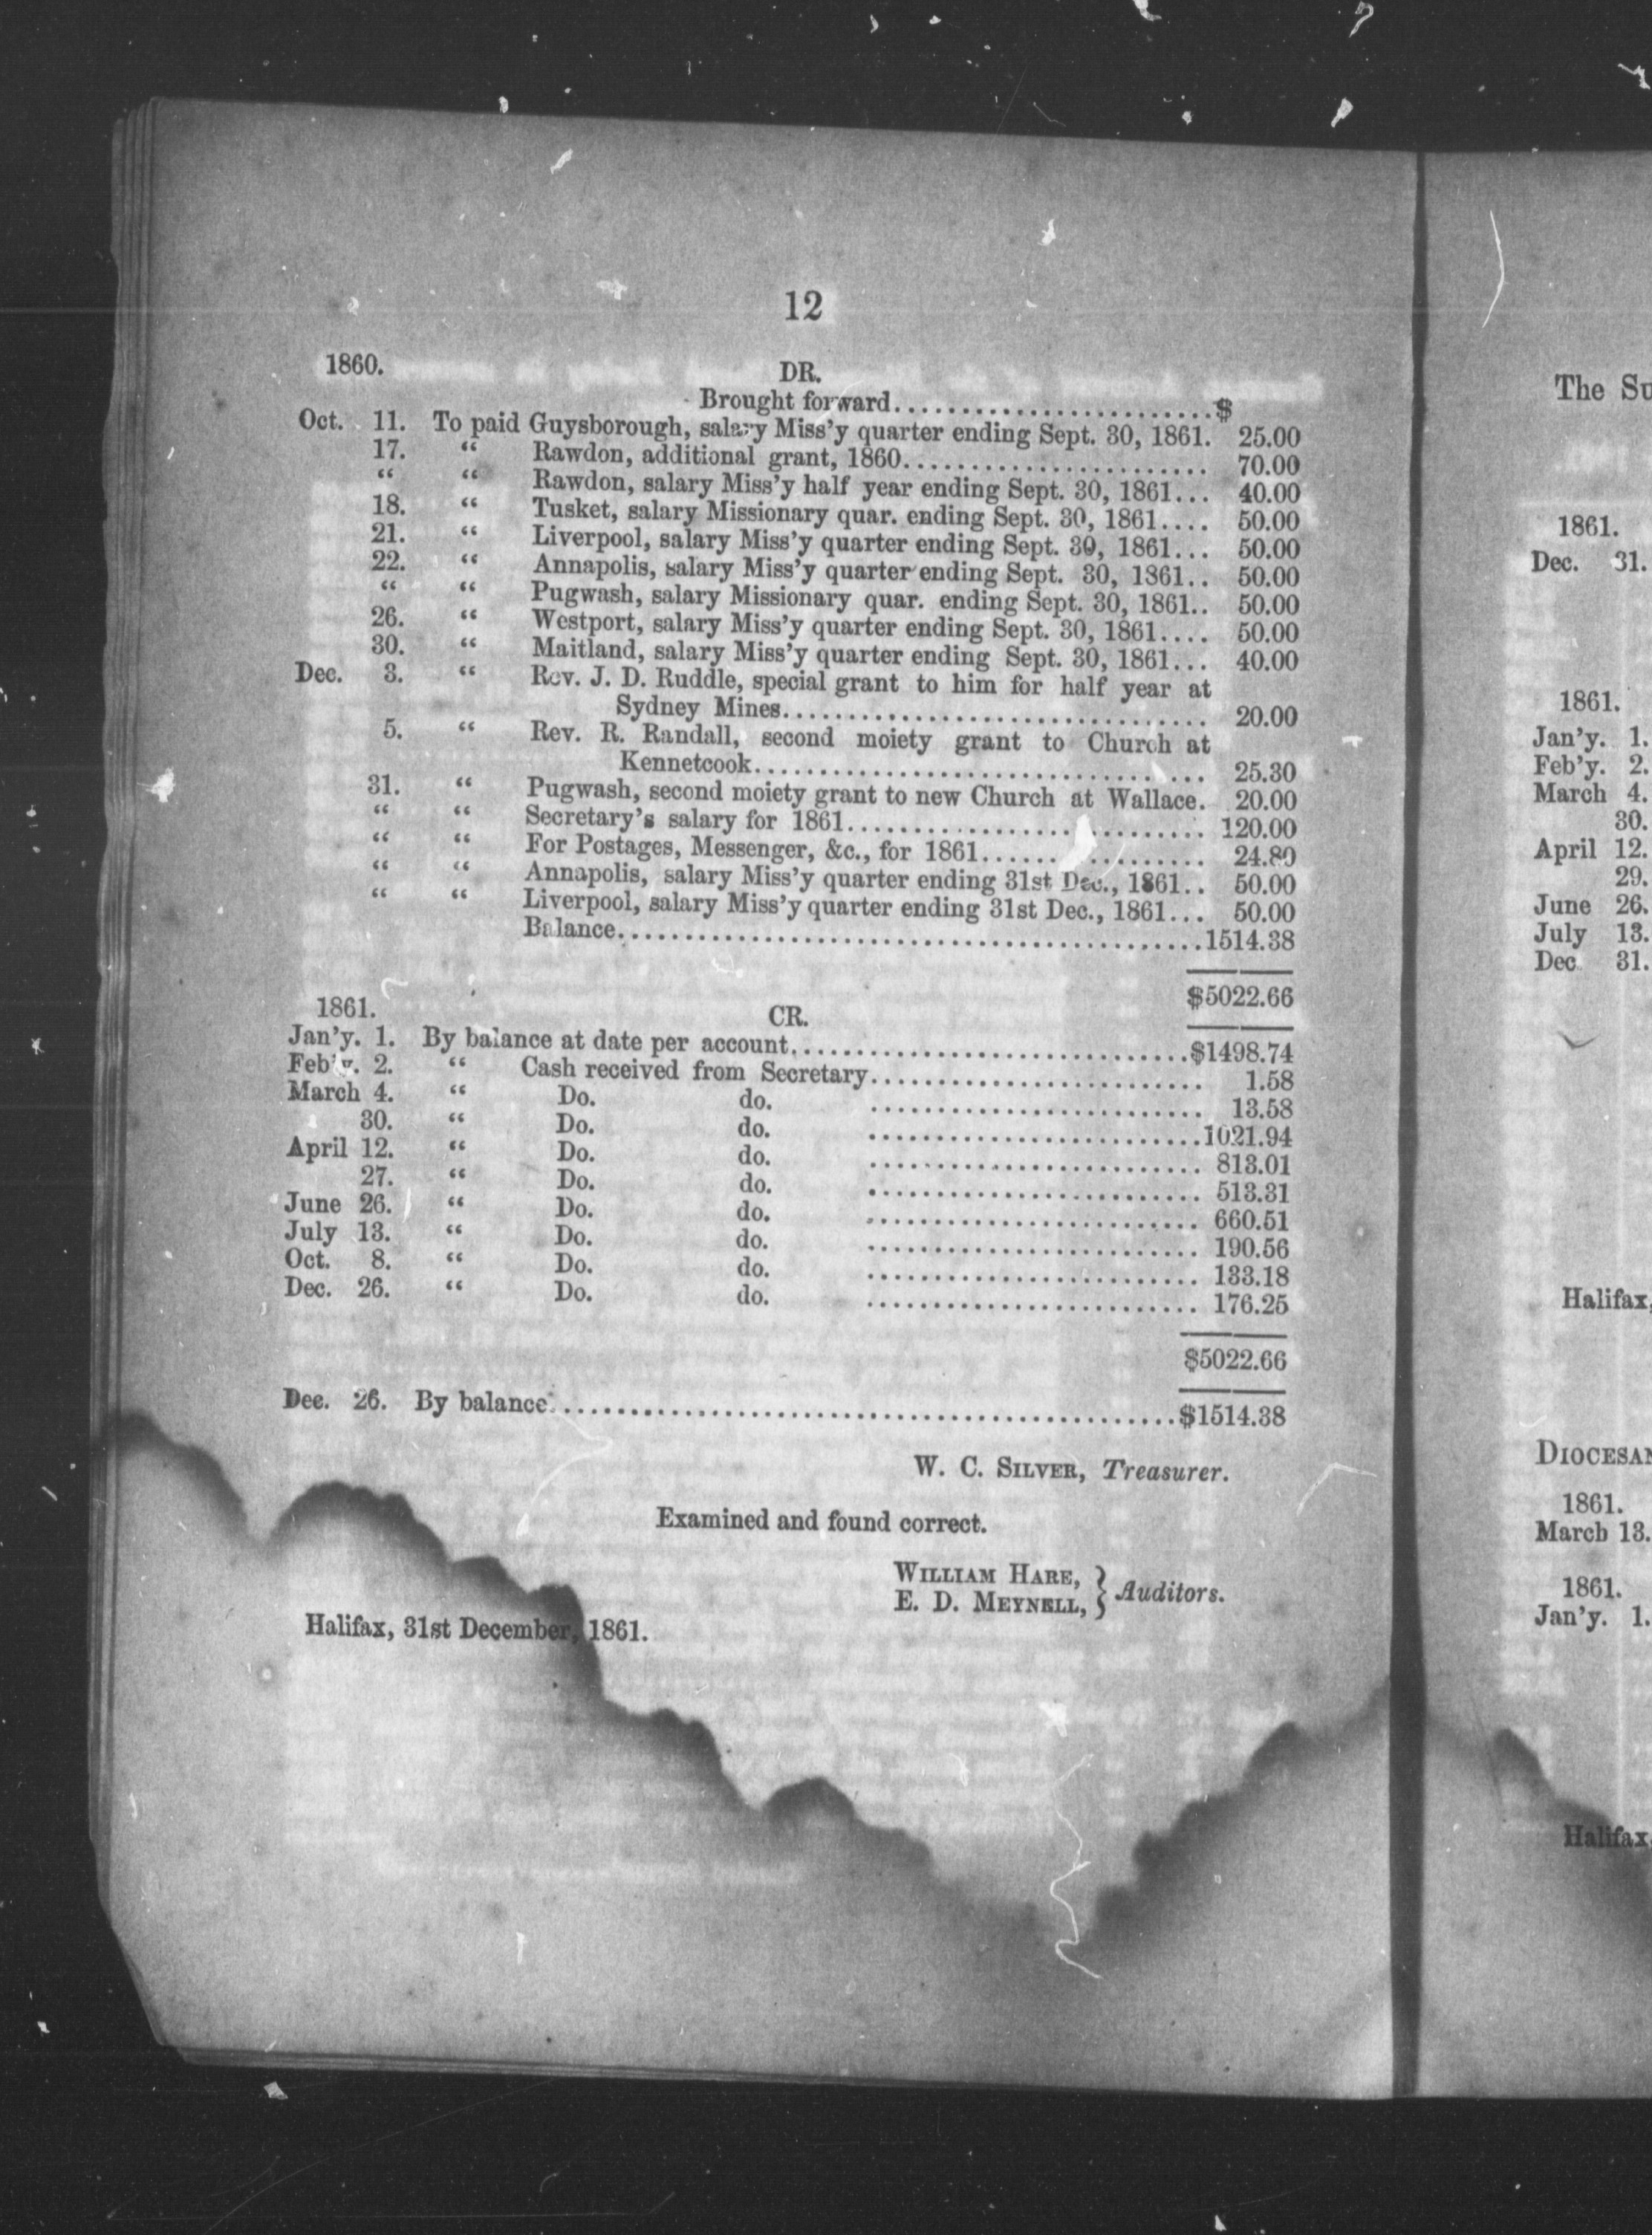 12
1860. DR.
Brought forward........................$
Oct. 11. To paid Guysborough, salary Miss'y quarter ending Sept. 30, 1861. 25.00
17. “ Rawdon, additional grant, 1860....................... 70.00
“ “ Rawdon, salary Miss'y half year ending Sept. 30, 1861... 40.00
18. “ Tusket, salary Missionary quar. ending Sept. 30, 1861.... 50.00
21. “ Liverpool, salary Miss'y quarter ending Sept. 30, 1861... 50.00
22. “ Annapolis, salary Miss'y quarter ending Sept. 30, 1861.. 50.00
“ “ Pugwash, salary Missionary quar. ending Sept. 30, 1861.. 50.00
26. “ Westport, salary Miss'y quarter ending Sept. 30, 1861.... 50.00
30. “ Maitland, salary Miss'y quarter ending Sept. 30, 1861... 40.00
Dec. 3. “ Rev. J. D. Ruddle, special grant to him for half year at
Sydney Mines................................ 20.00
5. “ Rev. R. Randall, second moiety grant to Church at
Kennetcook.................................. 25.30
31. “ Pugwash, second moiety grant to new Church at Wallace. 20.00
“ “ Secretary's salary for 1861........................... 120.00
“ “ For Postages, Messenger, &c., for 1861................. 24.80
“ “ Annapolis, salary Miss'y quarter ending 31st Dec., 1861.. 50.00
“ “ Liverpool, salary Miss'y quarter ending 31st Dec., 1861... 50.00
Balance............................................1514.38
$5022.66
1861. CR.
Jan'y. 1. By balance at date per account..............................$1498.74
Feb'y. 2. “ Cash received from Secretary......................... 1.58
March 4. “ Do. do. ......................... 13.58
30. “ Do. do. .........................1021.94
April 12. “ Do. do. ......................... 813.01
27. “ Do. do. ......................... 513.31
June 26. “ Do. do. ......................... 660.51
July 13. “ Do. do. ......................... 190.56
Oct. 8. “ Do. do. ......................... 133.18
Dec. 26. “ Do. do. ......................... 176.25
$5022.66
Dec. 26. By balance...............................................$1514.38
W. C. SILVER, Treasurer.
Examined and found correct.
WILLIAM HARE, } Auditors.
E. D. MEYNELL, }
Halifax, 31st December, 1861.
The
1861.
Dec. 31.
1861.
Jan'y. 1.
Feb'y. 2.
March 4.
30.
April 12.
29.
June 26.
July 13.
Dec 31.
Halifax,
1861.
March 13.
1861.
Jan'y. 1.
Halifax